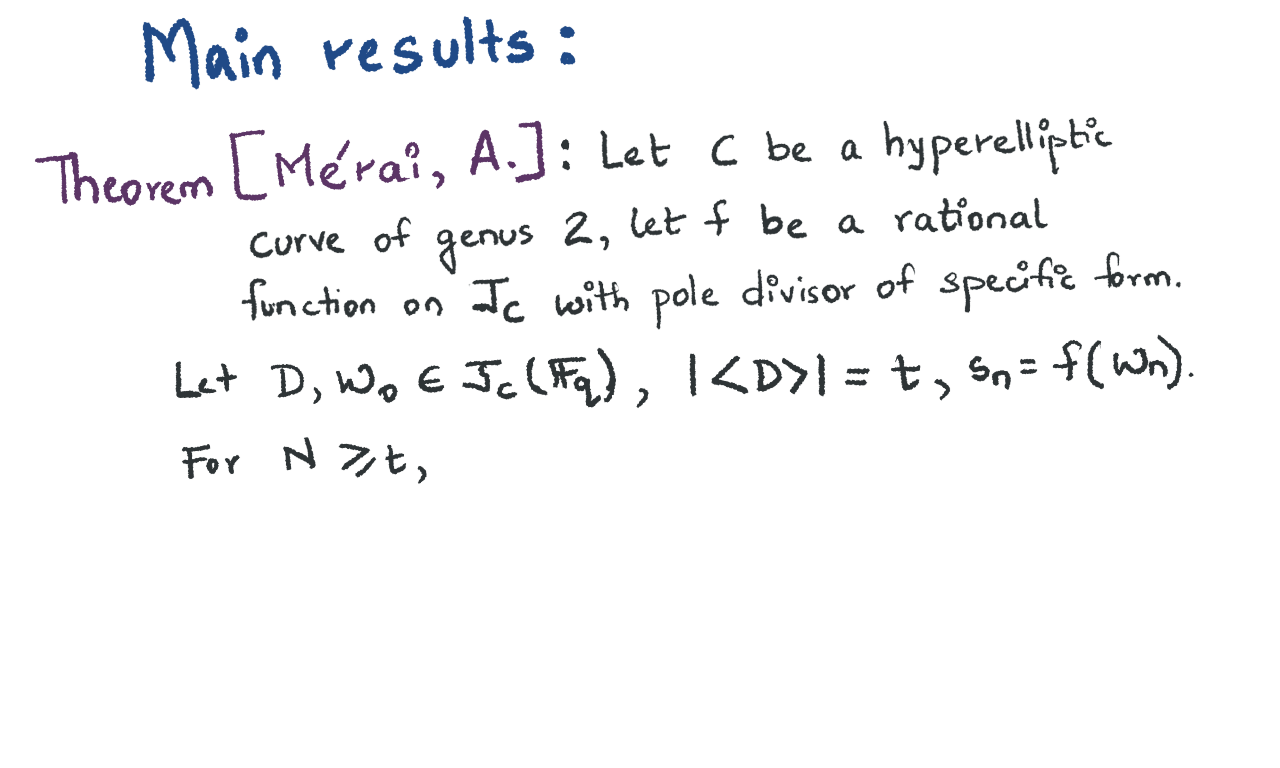 Main results:
Theorem [Mérai, A.]: Let C be a hyperelliptic
curve of genus 2, let f be a rational
function on J_C with pole divisor of specific form.
Let D, W₀ ∈ J_C(𝔽_q), |<D>| = t, s_n = f(W_n).
For N ⩾ t,